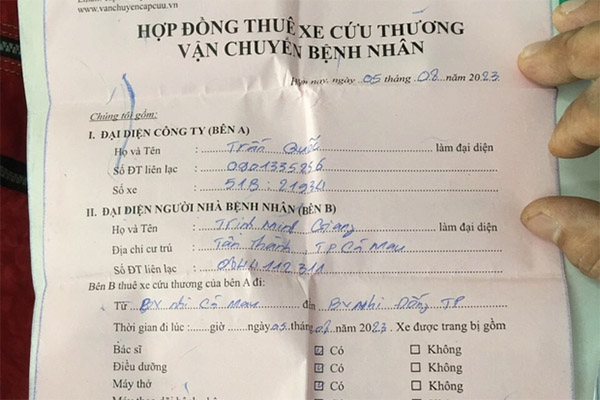 www.vanchuyencapcuu.net
HỢP ĐỒNG THUÊ XE CỨU THƯƠNG
VẬN CHUYỂN BỆNH NHÂN
Hôm nay, ngày 05 tháng 08 năm 2023
Chúng tôi gồm:
I. ĐẠI DIỆN CÔNG TY (BÊN A)
Họ và Tên : Trần Quốc làm đại diện
Số ĐT liên lạc : 0901335256
Số xe : 51B: 21934
II. ĐẠI DIỆN NGƯỜI NHÀ BỆNH NHÂN (BÊN B)
Họ và Tên : Trịnh Minh Giang làm đại diện
Địa chỉ cư trú : Tân Thành, TP Cà Mau
Số ĐT liên lạc : 0944112311
Bên B thuê xe cứu thương của bên A đi:
Từ BV Nhi Cà Mau đến BV Nhi Đồng TP
Thời gian đi lúc :......giờ ......ngày 05 tháng 08 năm 2023. Xe được trang bị gồm
Bác sĩ ☑ Có ☐ Không
Điều dưỡng ☑ Có ☐ Không
Máy thở ☑ Có ☐ Không